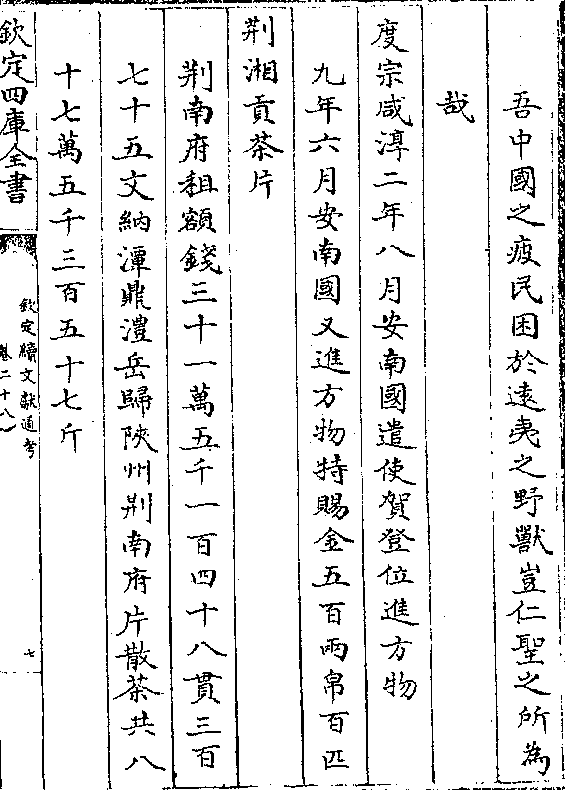 吾中國之疲民困於遠夷之野獸豈仁聖之所為
哉
度宗咸淳二年八月安南國遣使賀登位進方物
九年六月安南國又進方物特賜金五百兩帛百匹
荆湘貢茶片
荆南府租額錢三十一萬五千一百四十八貫三百
七十五文納潭鼎澧岳歸陜州荆南府片散茶共八
十七萬五千三百五十七斤
欽定四庫全書
欽定續文獻通考
卷二十八
七